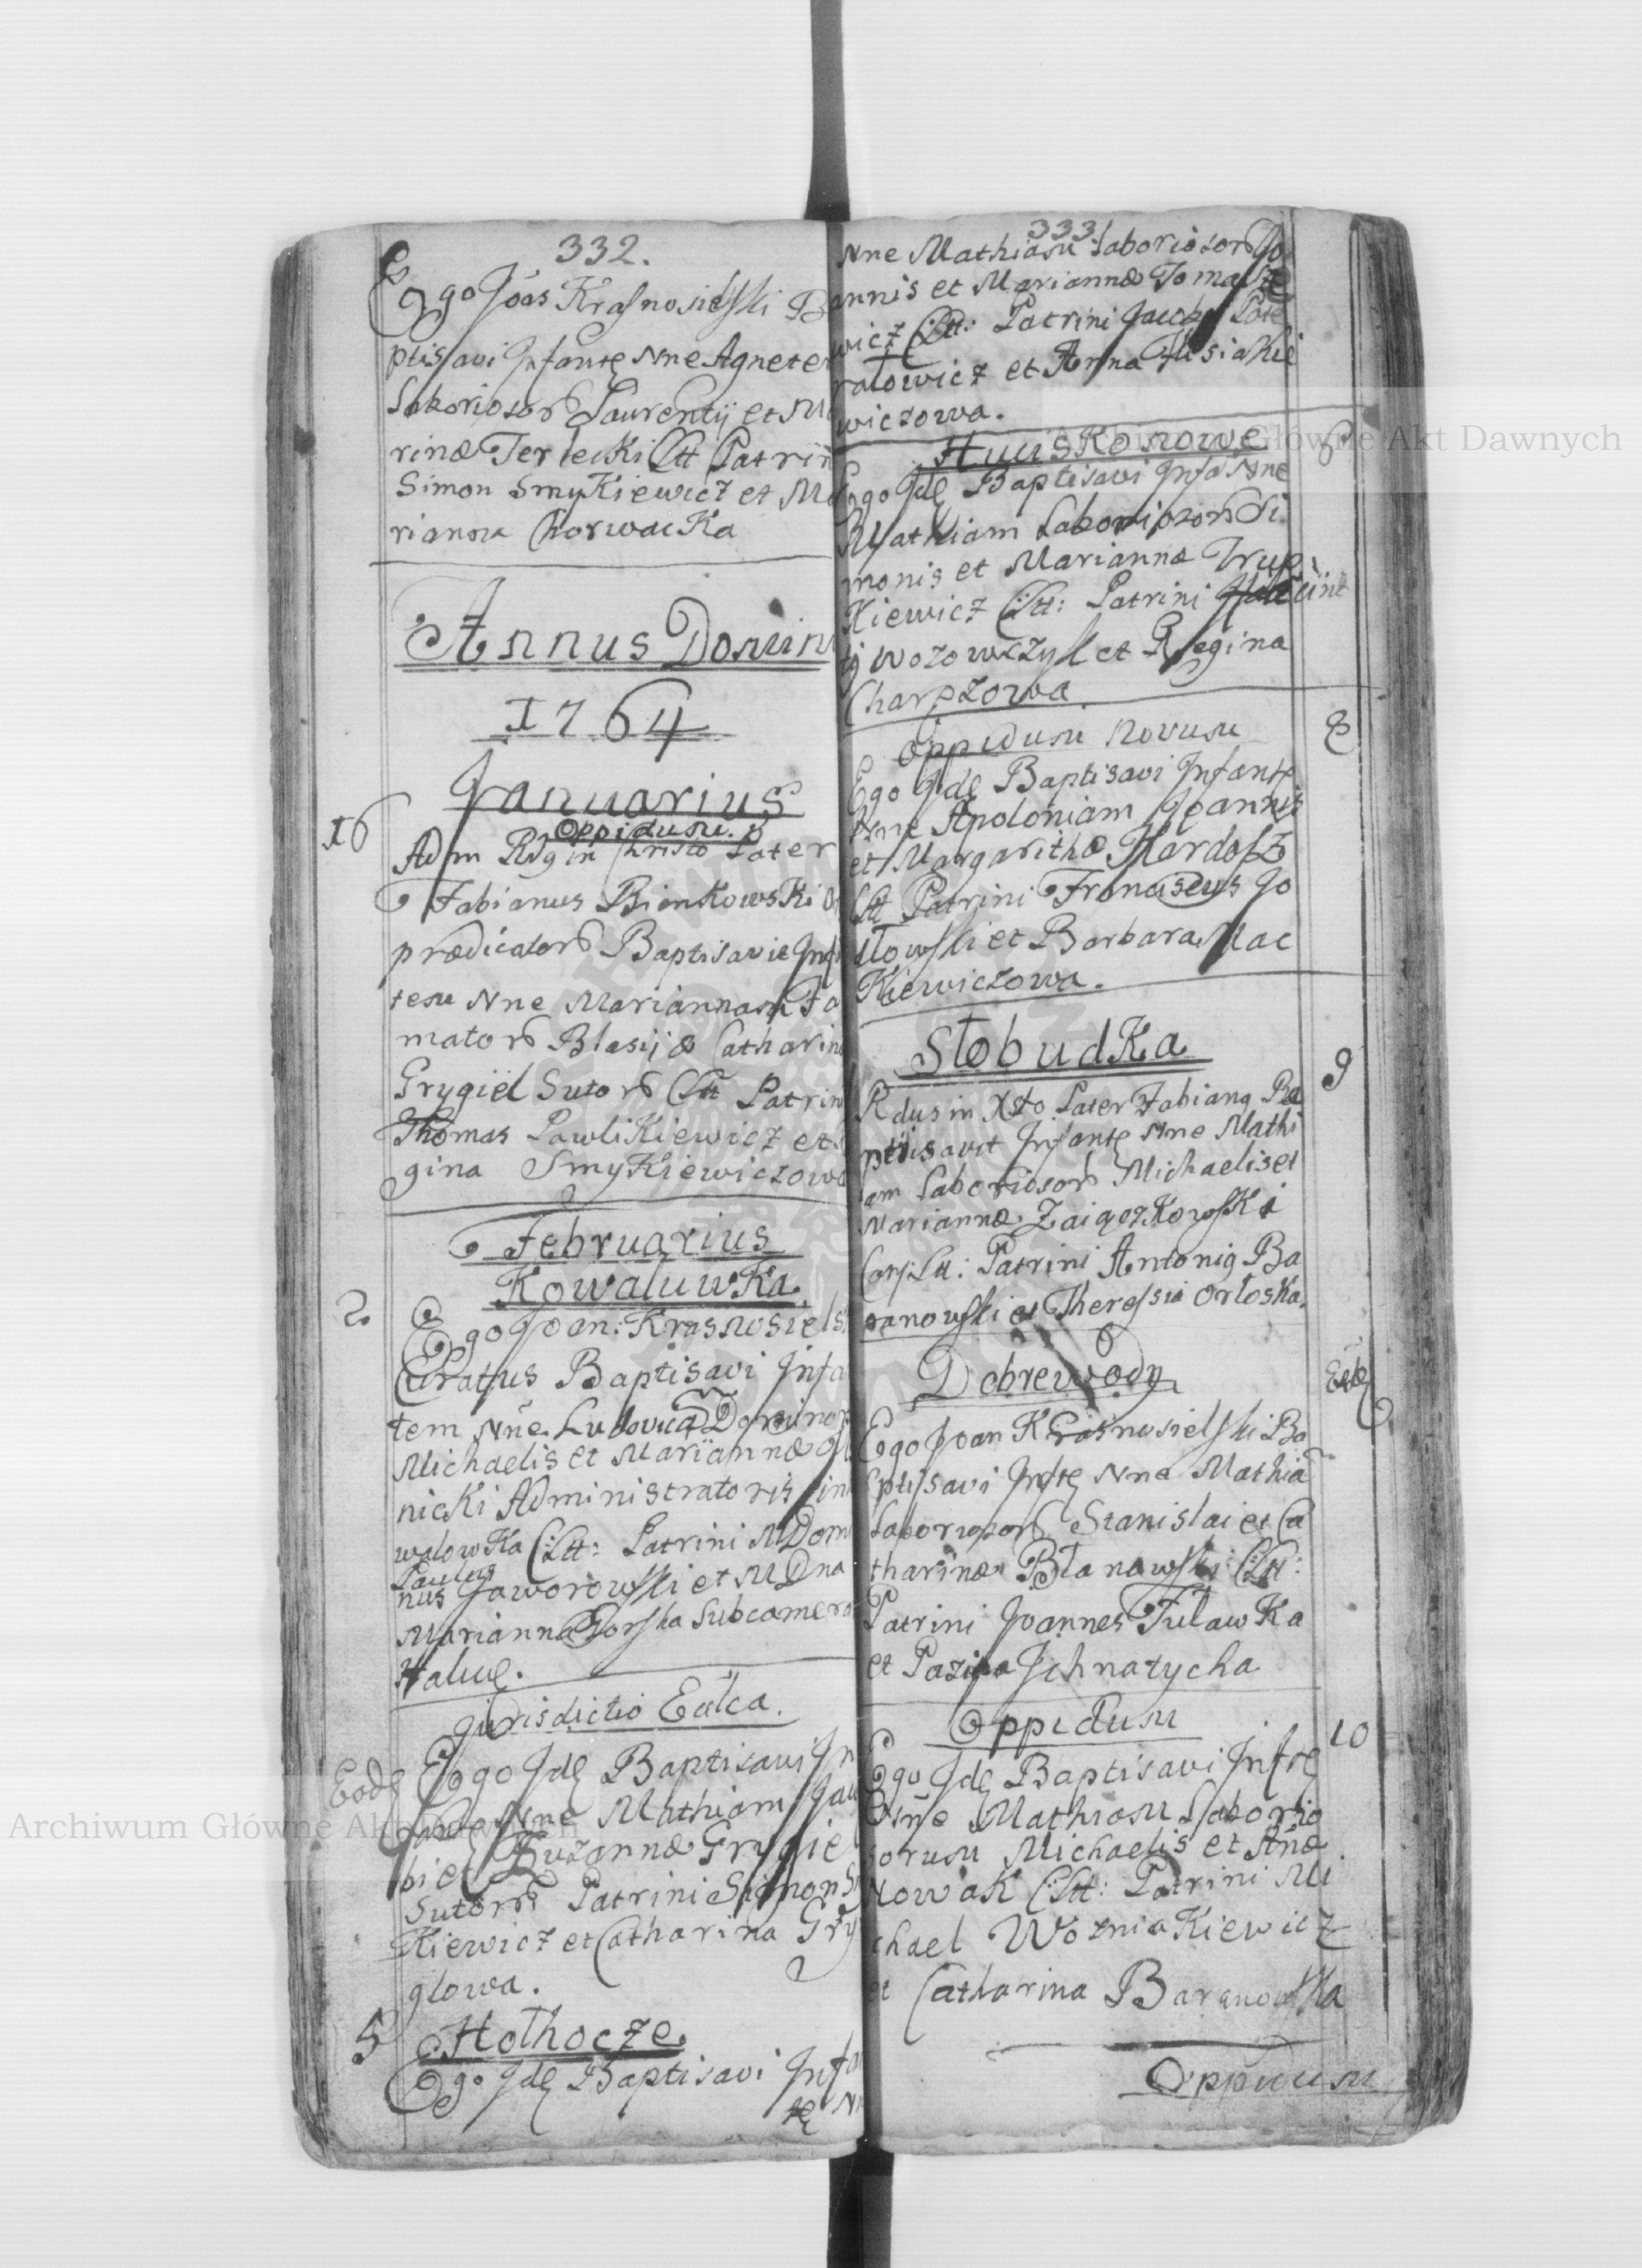 332.
Ego Joãs Krasnosielski Ba
ptisavi Infantę Nne Agnetem
Laborioror Laurentij et Ma
rinæ Terlecki CLtt Patrini
Simon Smykiewicz et Ma
rianna Chorwacka
Annus Domini
1764
Januarius
Oppidum
16
Adm Rdg in Christo Pater
Fabianus Bienkowski
prædicator Baptisavit Infan
tem Nne Mariannam Fa
mator Blasij & Catharinæ
Grygiel Sutor CLtt Patrini
Thomas Pawlikiewicz et
gina Smykiewiczowa
Februarius
Kowaluwka
2
Ego Joan: Krasnosielski
Curatus Baptisavi Infan
tem Nñe Ludovica Dominor
Michaelis et Mariannæ
nicki Administratoris in
walowka CLtt: Patrini M Domi
Paulus
nus Jaworowski et M Dna
Marianna Gorska Subcamera
Haliuę.
jurisdictio Ealca.
Eodę
Ego Idę Baptisavi In
fantę Nne Mathiam Jaco
bi et Zuzannæ Grygiel
Sutorr Patrini Simon Smy
Kiewicz et Catharina Gry
glowa.
5
Hołhocze
Ego Idę Baptisavi Infan
tę Nne
333
Nne Mathiam Laborioror Jo
annis et Mariannæ Tomasze
wicz CLtt: Patrini Jacobg Pate
rałowicz et Anna Misiakie
wiczowa.
Huiskonowe
8
Ego Idę Baptisavi Infã Nne
Mathiam Laborioror Si
monis et Mariannæ Trup
Kiewicz CLtt: Patrini
ty Wozowczyk et Regina
Charpzowa.
Oppidum Novum
8
Ego Idę Baptisavi Infantę
Nne Apoloniam Joannis
et Margarithæ Kardasz
CLtt Patrini Franciscus Go
łłowski et Barbara Mac
Kiewiczowa.
Słobudka
9
Rdus in Xto Pater Fabiang Ba
ptisavit Infantę Nne Mathi
am Laborioror Michaelis et
Mariannæ Zaigozkowski
Conj: Ltt: Patrini Antonig Ba
ranowski et Theressia Orłoska.
Dobrewody
Eodę
Ego Joan Krasnosielski Ba
ptisavi Inftę Nne Mathiã
Laborioror Stanislai et Ca
tharinæ Błanowski CLtt:
Patrini Joannes Fuławka
et Pazina Jchnatycha
Oppidum
10
Ego Idę Baptisavi Inftę
Nñe Mathiam Laborio
sorum Michaelis et Añæ
Nowak CLtt: Patrini Mi
chael Wozniakiewicz
et Catharina Baranowska
Oppidum
Archiwum Główne Akt Dawnych
Archiwum Główne Akt Dawnych